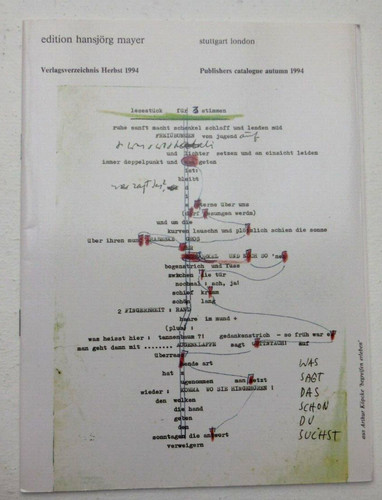 edition hansjörg mayer
stuttgart london
Verlagsverzeichnis Herbst 1994
Publishers catalogue autumn 1994
lesestück für 3 stimmen
ruhe sanft macht schenkel schlaff und lenden müd
von jugend auf
und lichter setzen und an einsicht leiden
immer doppelpunkt und geten
ist:
bleibt
sterne über uns
und um die
kurven lauschn und plötzlich schien die sonne
über ihren mund
UND NOCH SO 'ne
bogenstrich und fuss
zwischen die tür
nochmal: ach, ja!
schlief krumm
schön lang
2 FINGERBREIT: RAND
haare im mund =
(plus) :
was heisst hier : tannenbaum ?! gedankenstrich - so früh war es
man geht damit mit ........ AUGENKLAPPE sagt auf
überrascht
hat
angenommen man jetzt
wieder : KOMMA WO SIE HINGEHÖREN !
den wolken
die hand
guten
den
sonntagen die antwort
verweigern
WAS
SAGT
DAS
SCHON
DU
SUCHST
aus Arthur Köpcke 'begreifen erleben'